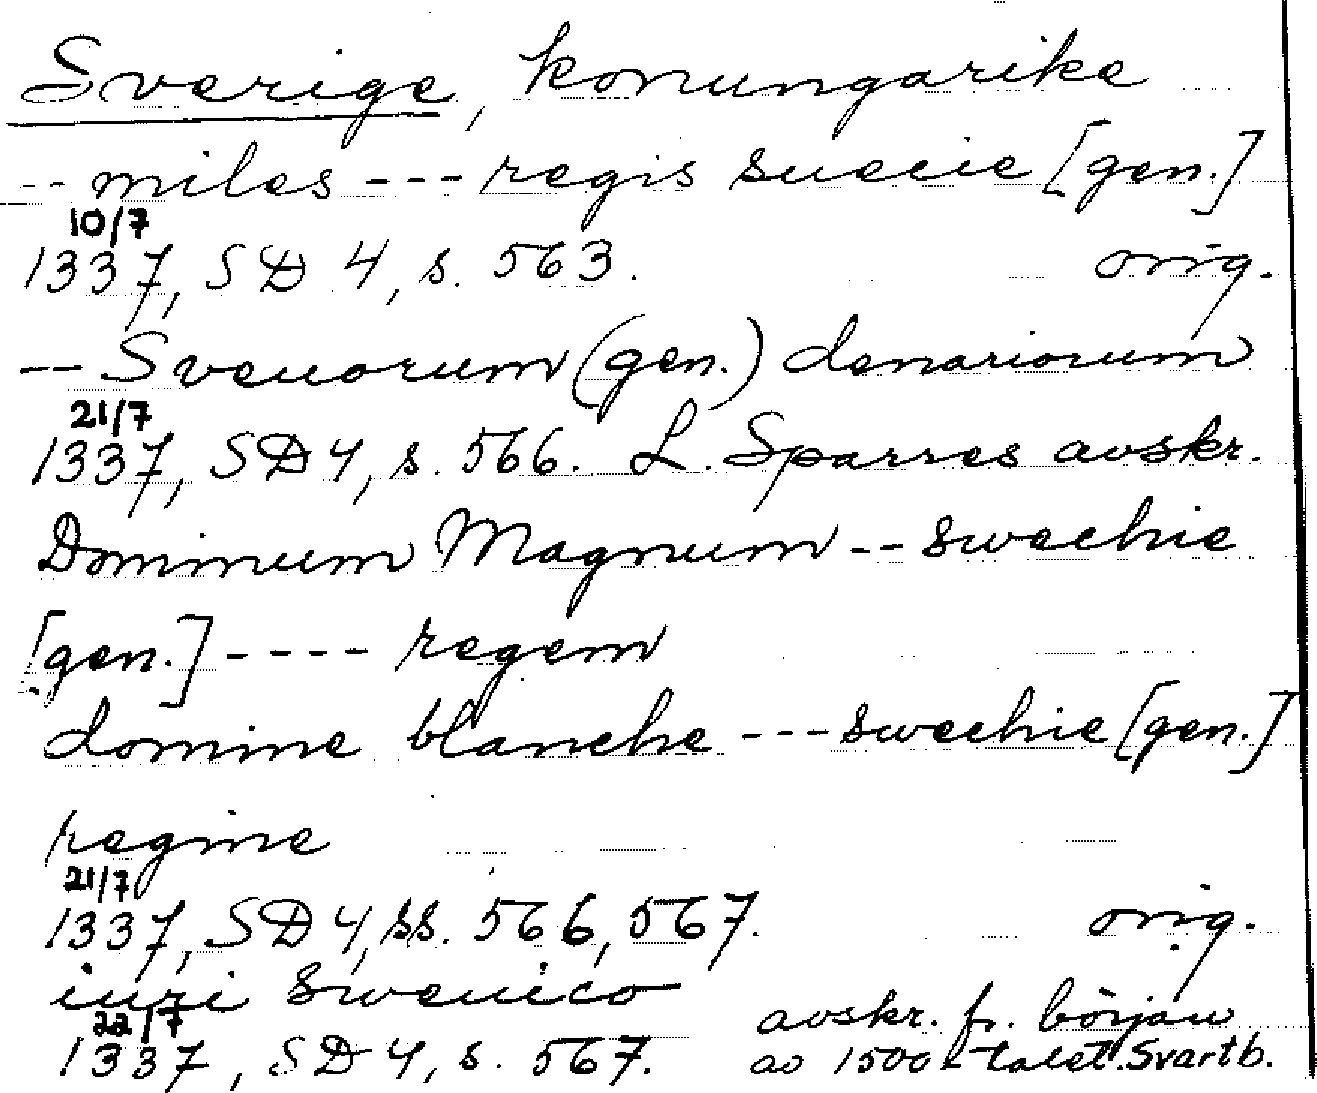 Sverige, konungarike
-- miles --- regis suecie [gen.]
10/7
1337, SD 4, s. 563. orig.
-- Sveuorum (gen.) denariorum
21/7
1337, SD 4, s. 566. L. Sparres avskr.
Dominum Magnum -- swechie
[gen.] ---- regem
domine blanche --- swechie [gen.]
regine
21/7
1337, SD 4, ss. 566, 567. orig.
iuri Swenico
22/7
1337, SD 4, s. 567. avskr. fr. början
av 1500-talet. Svartb.